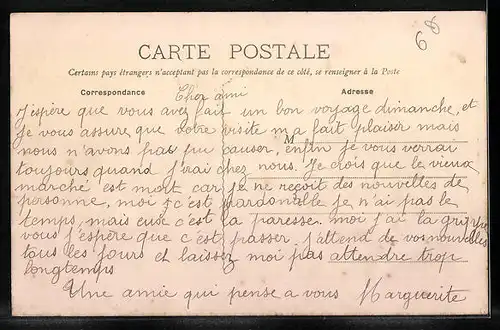 60
CARTE POSTALE
Certains pays étrangers n'acceptant pas la correspondance de ce côté, se renseigner à la Poste
Correspondance
Adresse
Cher ami
J'espère que vous avez fait un bon voyage dimanche, et
je vous assure, que votre visite m'a fait plaisir mais
M
nous n'avons pas pu causer, enfin je vous verrai
toujours quand j'irai chez nous. Je crois que le vieux
marché est mort car je ne reçoit des nouvelles de
personne, moi c'est pardonable je n'ai pas le
temps, mais eux c'est la paresse. moi j'ai la grippe
vous j'espère que c'est passer. J'attend de vos nouvelles
tous les jours et laissez moi pas attendre trop
longtemps
Une amie qui pense a vous Marguerite